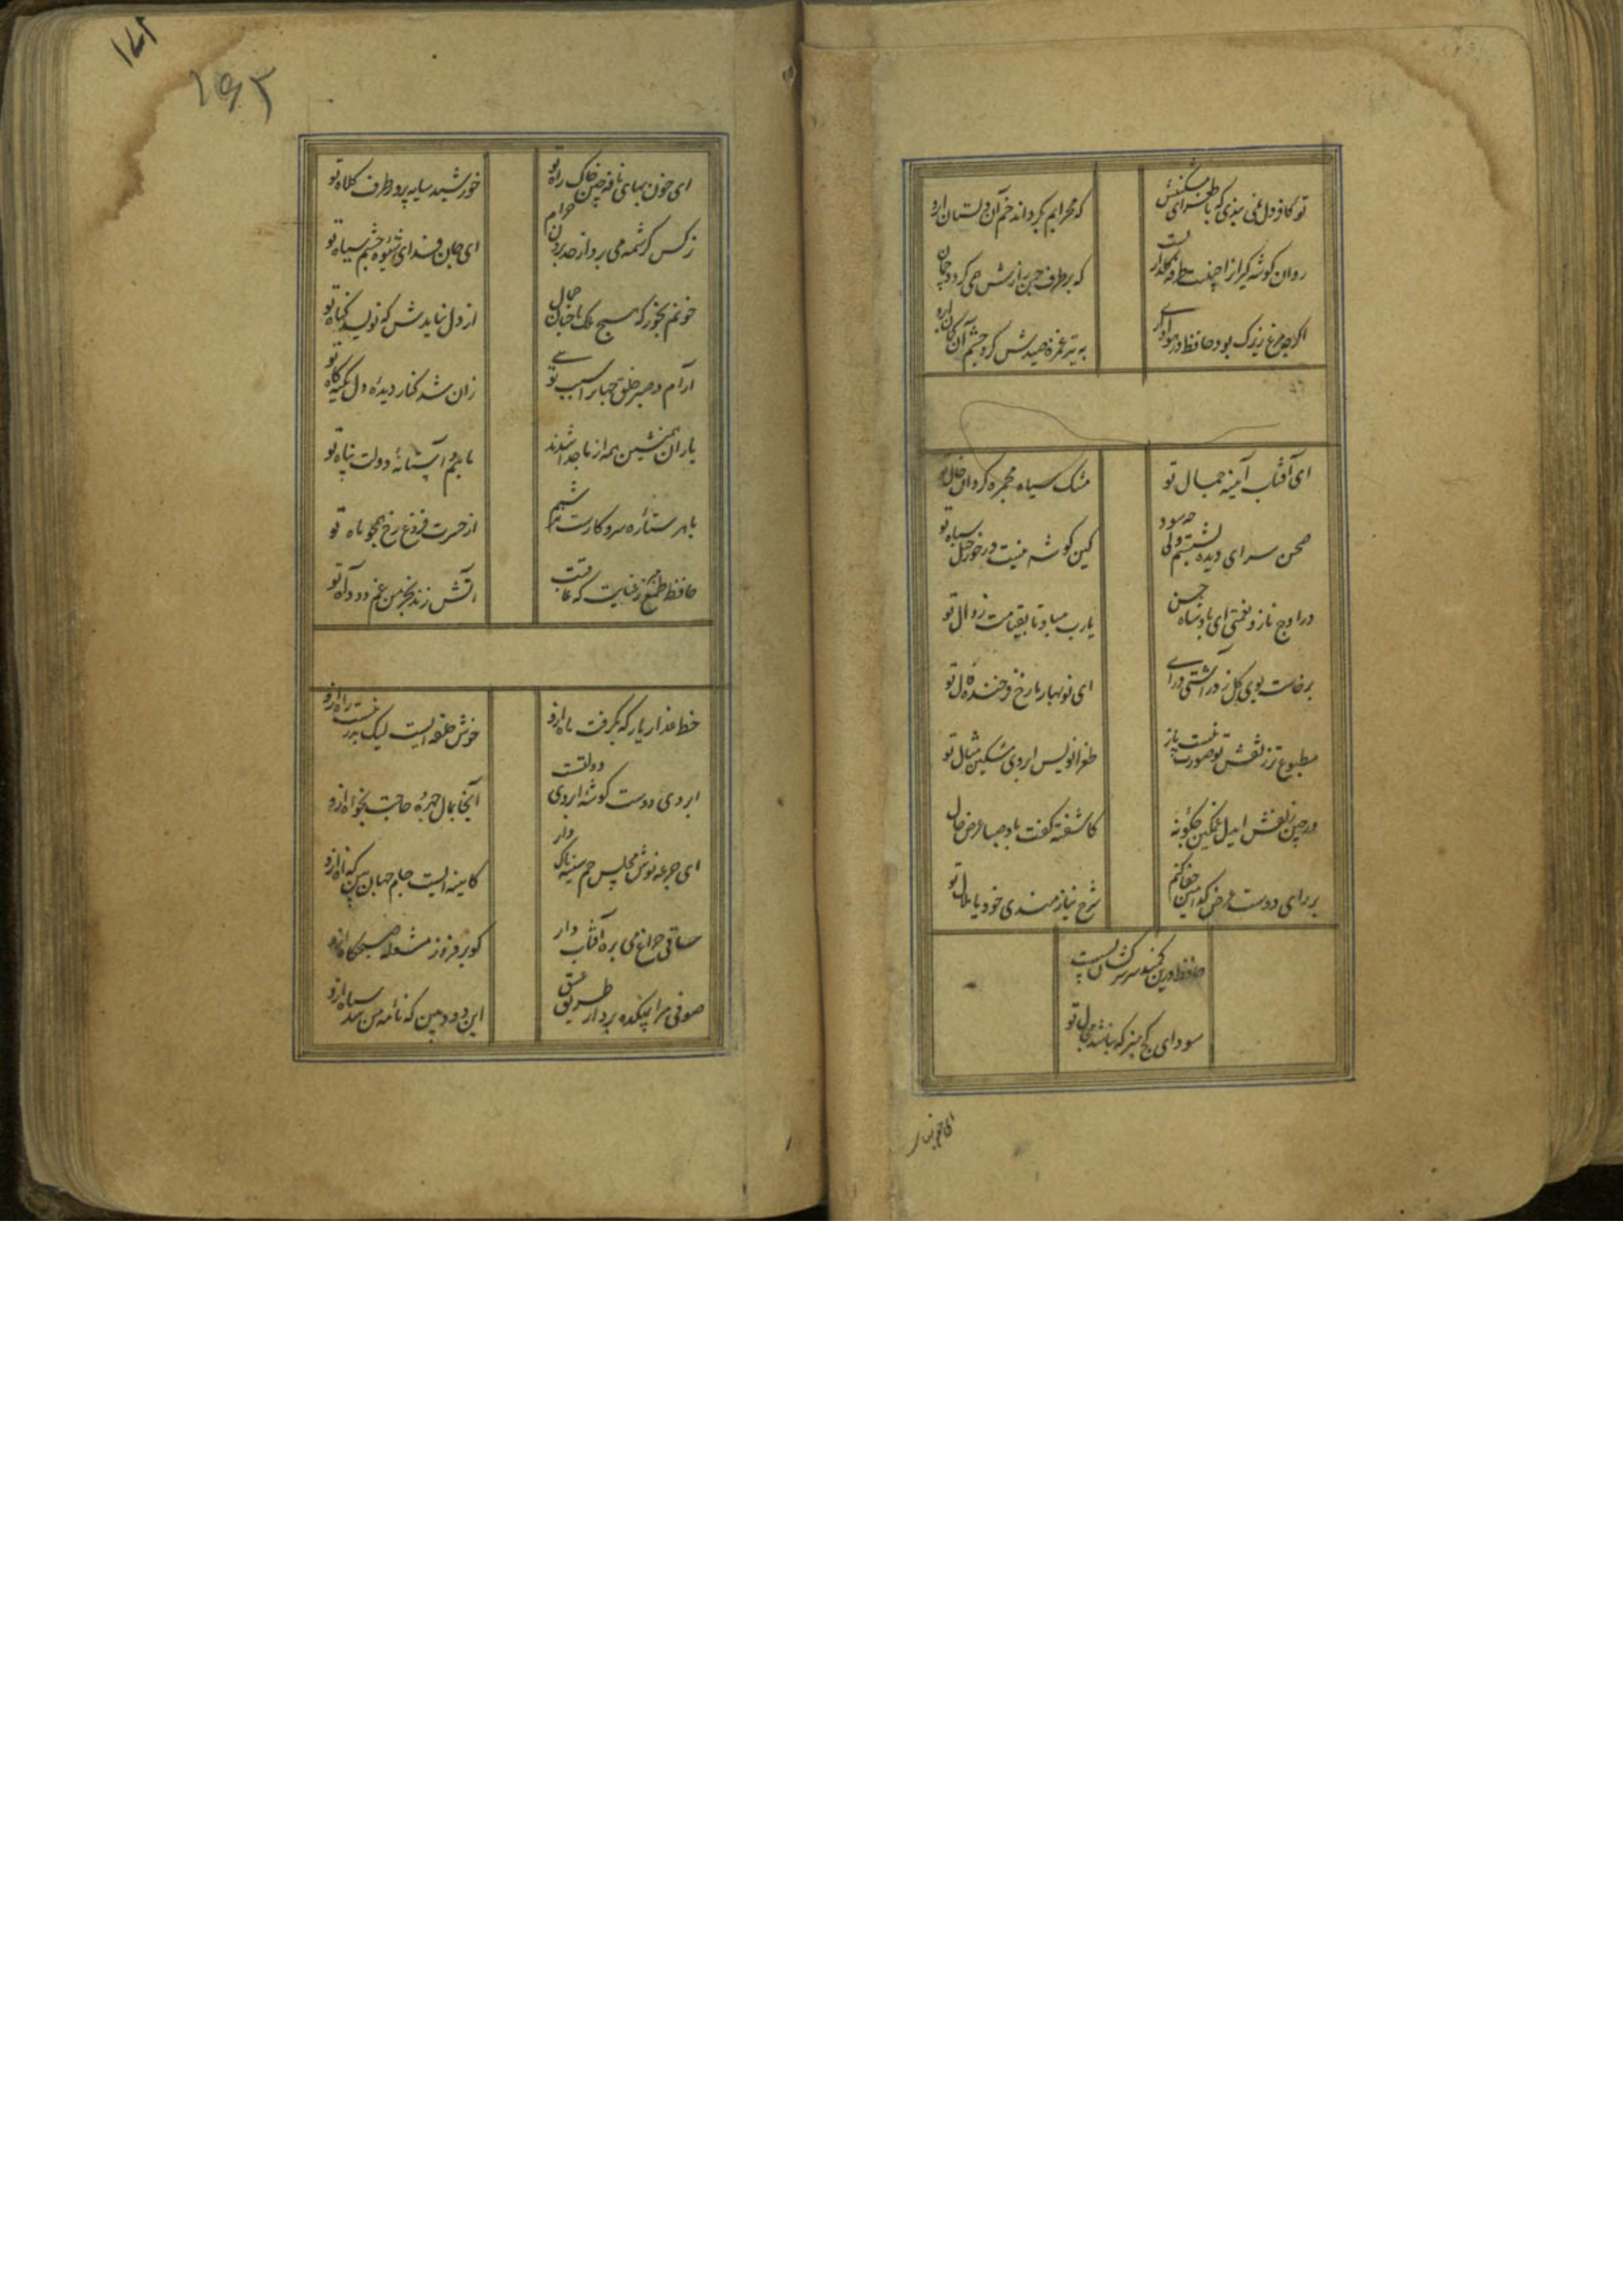 تو کافر دل نمی بندی که با طرای مشکینش
که محرابم بکرداند خم آن دلستان ابرو
روان کوشه کیرانرا جبینت طرفه کلزاریست
که بر طرف چمن زارش می کردد چمان ابرو
اکرچه مرغ زیرک بود حافظ در هواداری
به تیر غمزه صیدش کرد چشم آن کمان ابرو
ای آفتاب آینه جمال تو
مشک سیاه مجمره کردان خال تو
صحن سرای دیده بشستم ولی چه سود
کین کوشه نیست در خور خیل سپاه تو
در اوج ناز و نعمتی ای پادشاه حسن
یارب مباد تا بقیامت زوال تو
برخاست بوی کل ز در آشتی درآی
ای نوبهار ما رخ فرخنده فال تو
مطبوع تر ز نقش تو صورت نبست باز
طغرانویس ابروی مشکین مثال تو
در چین زلفش ایدل مسکین چکونه
کاشفته کفت باد صبا عرض حال تو
بر رای دوست عرض کدامین جفا کنم
شرح نیازمندی خود یا ملال تو
حافظ درین کمند سر سرکشان بسیست
سودای کج مپز که نباشد مجال تو
ای خونبها
۱۷۲
۱۶۳
ای خون بهای نافه چین خاک راه تو
خورشید سایه پرور طرف کلاه تو
نرکس کرشمه می برد از حد برون خرام
ای جان فدای شیوه چشم سیاه تو
خونم بخور که هیچ ملک با چنان جمال
از دل نیایدش که نویسد کناه تو
آرام و صبر خلق جهانرا سبب تویی
زان شد کنار دیده و دل تکیه کاه تو
یاران همنشین همه از ما جدا شدند
ماییم و آستانه دولت پناه تو
با هر ستاره سر و کارست هر شبم
از حسرت فروغ رخ همچو ماه تو
حافظ طمع مبر ز عنایت که عاقبت
آتش زند بخرمن غم دود آه تو
خط عذار یار که بکرفت ماه ازو
خوش حلقه ایست لیک بدر نیست راه ازو
ابروی دوست کوشه ابروی دولتست
آنجا بمال چهره حاجت بخواه ازو
ای جرعه نوش مجلس جم سینه پاک دار
کاینه ایست جام جهان بین که آه ازو
ساقی چراغ می بره آفتاب دار
کو بر فروز مشعله صبحکاه ازو
صوفی مرا بمیکده برد از طریق عشق
این دود بین که نامه من شد سیاه ازو